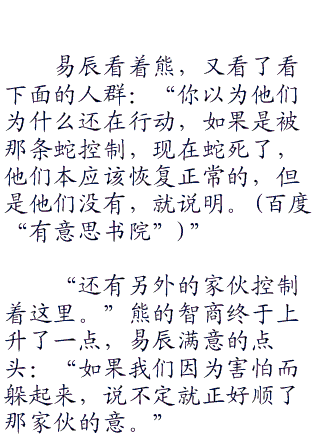 易辰看着熊，又看了看
下面的人群：“你以为他们
为什么还在行动，如果是被
那条蛇控制，现在蛇死了，
他们本应该恢复正常的，但
是他们没有，就说明。(百度
“有意思书院”)”
“还有另外的家伙控制
着这里。”熊的智商终于上
升了一点，易辰满意的点
头：“如果我们因为害怕而
躲起来，说不定就正好顺了
那家伙的意。”